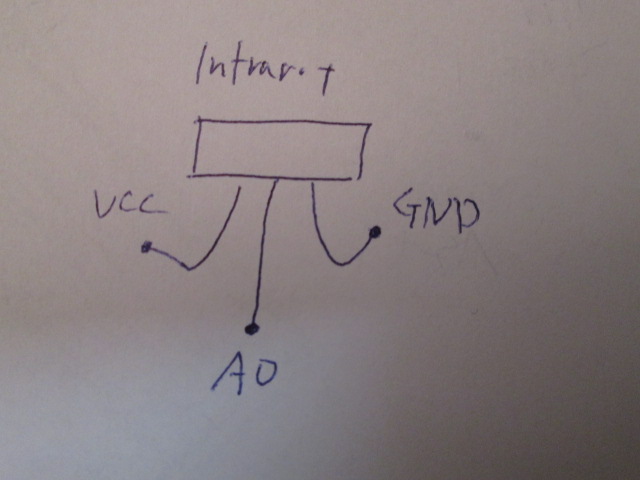 Intrar.t
VCC
GND
A0